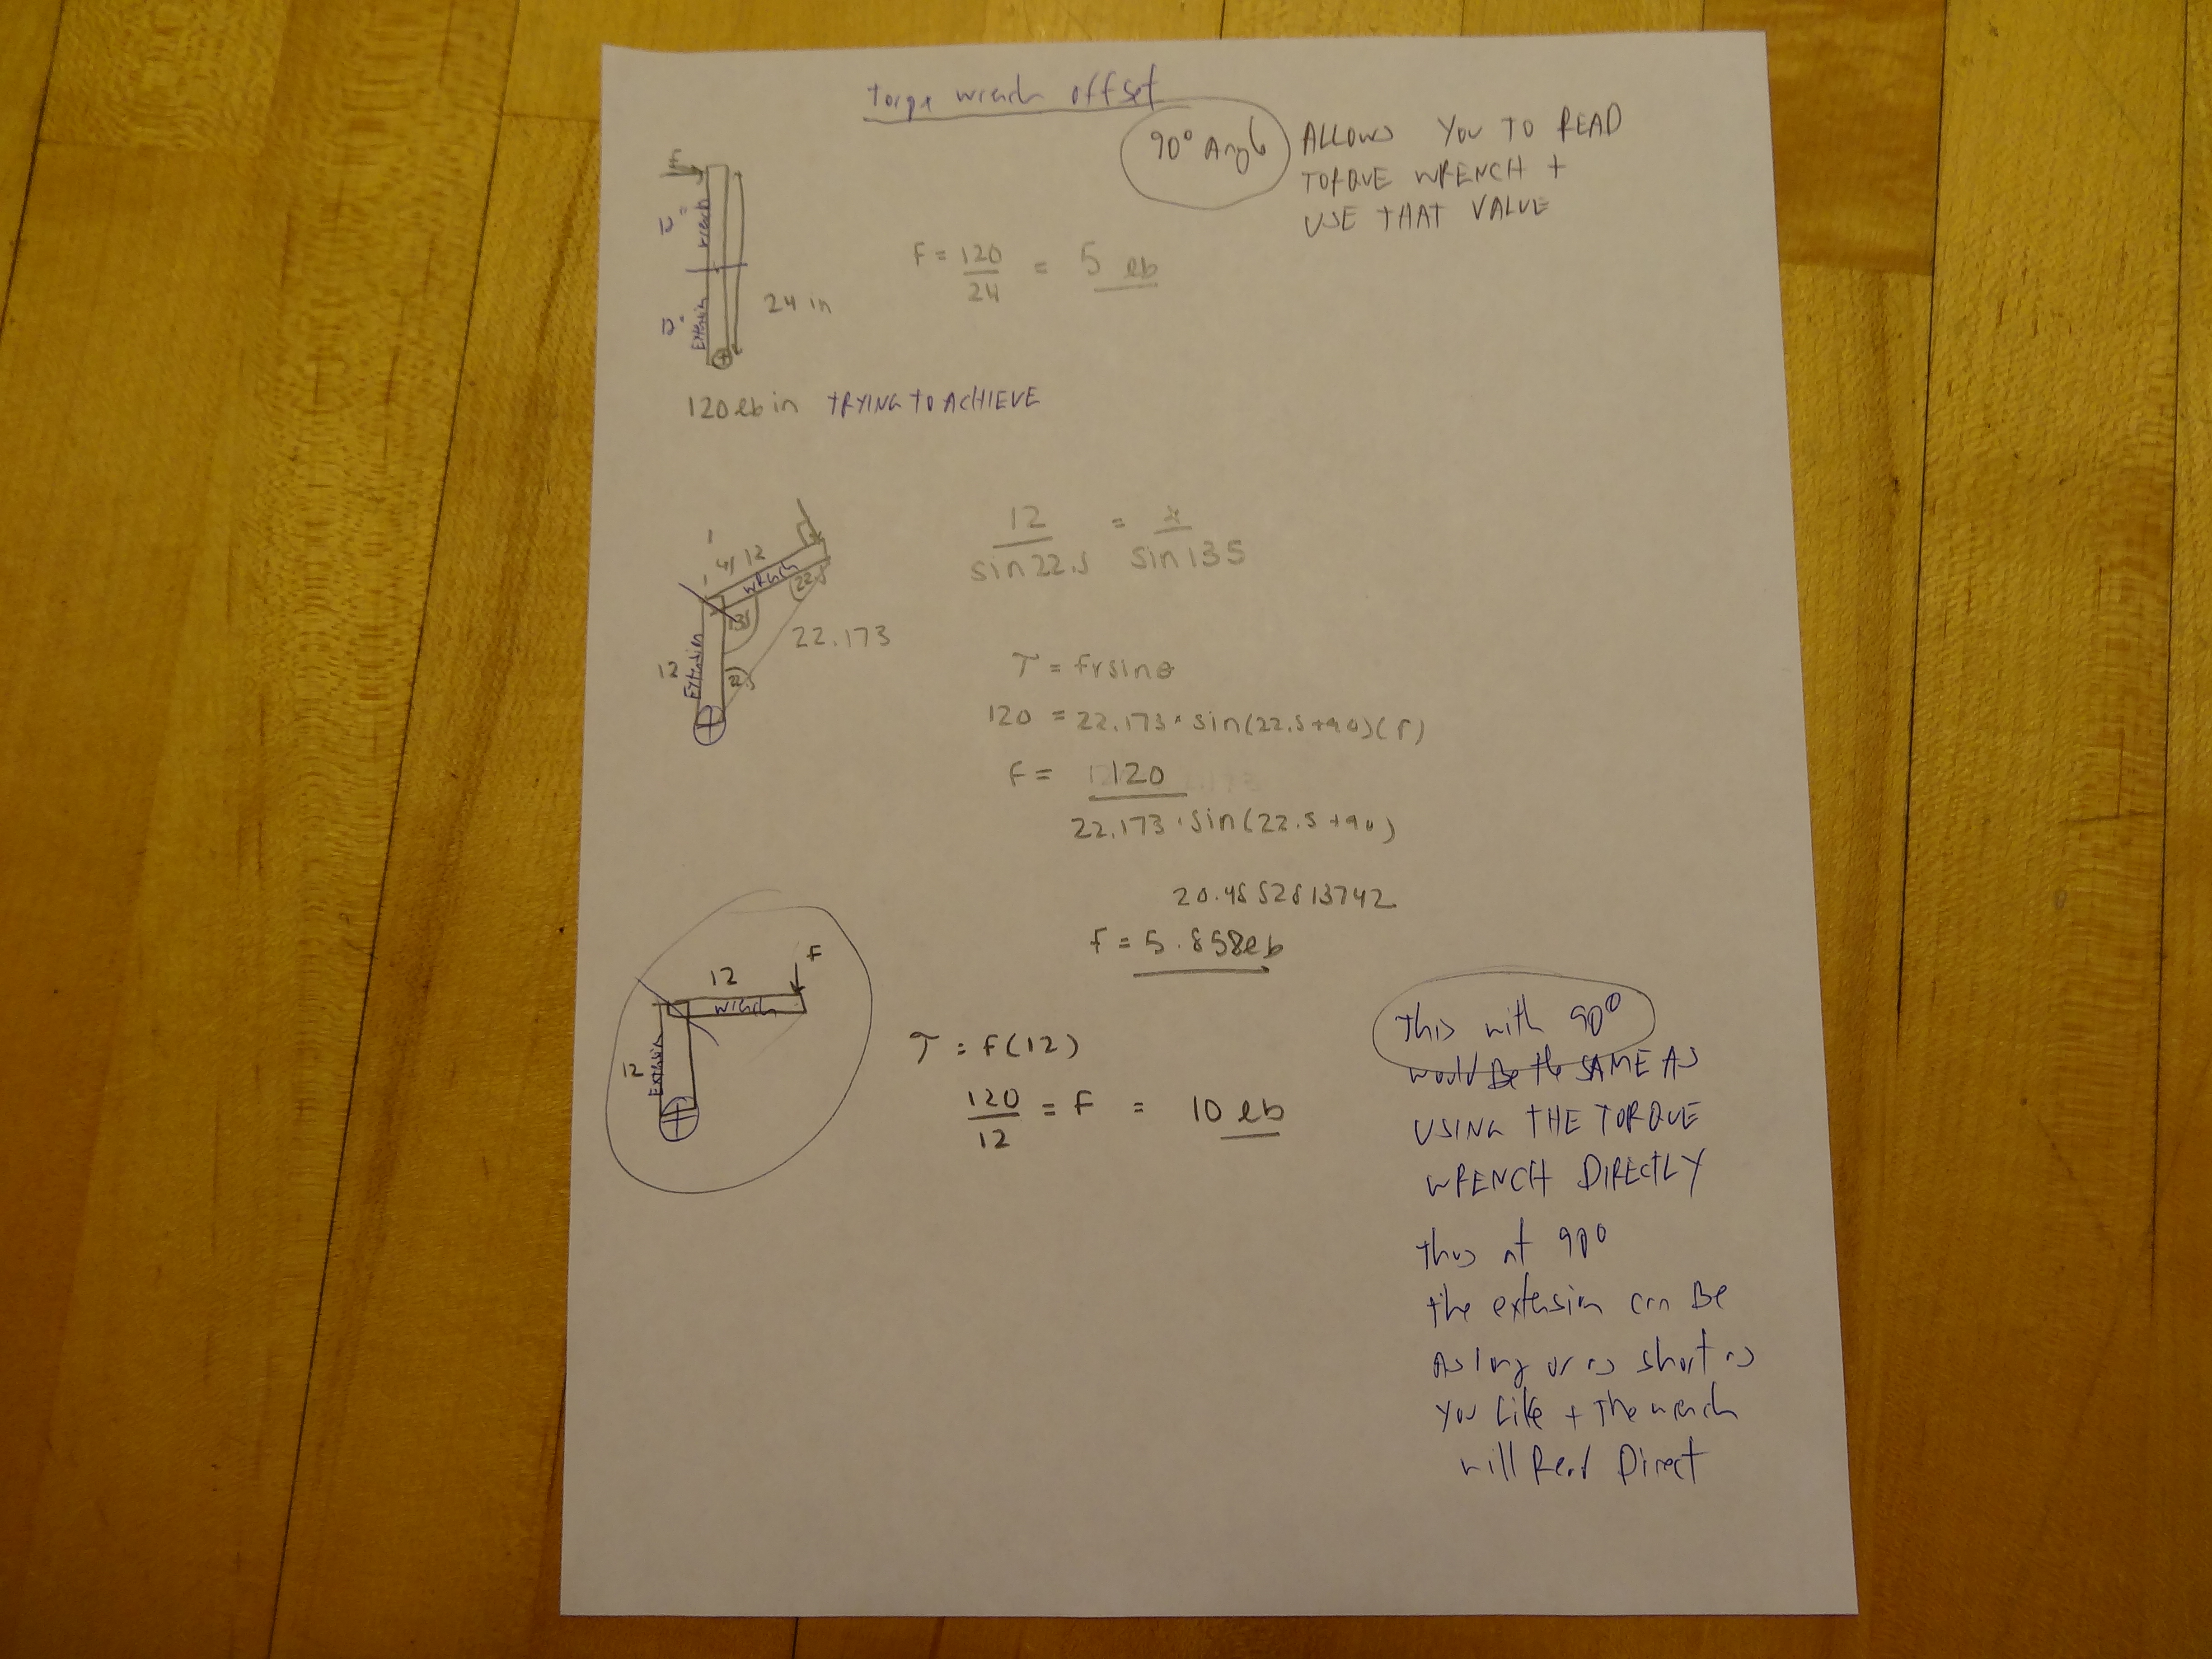 torqe wrench offset
90° Angle
ALLOWS YOU TO READ
TORQUE WRENCH +
USE THAT VALUE
F
12" wrench
12" Extension
24 in
F = 120 / 24 = 5 lb
120 lb in TRYING TO ACHIEVE
12
wrench
22.5
135
22.173
12
Extension
22.5
12 / sin 22.5 = x / sin 135
τ = frsinθ
120 = 22.173 · sin(22.5+90)(F)
F = 120
22.173 · sin(22.5+90)
20.4852813742
F = 5.858 lb
12
F
wrench
12
Extension
τ = F(12)
120 / 12 = F = 10 lb
This with 90°
would Be the SAME AS
USING THE TORQUE
WRENCH DIRECTLY
thus at 90°
the extension can Be
As long or as short as
you Like + The wrench
will Read Direct